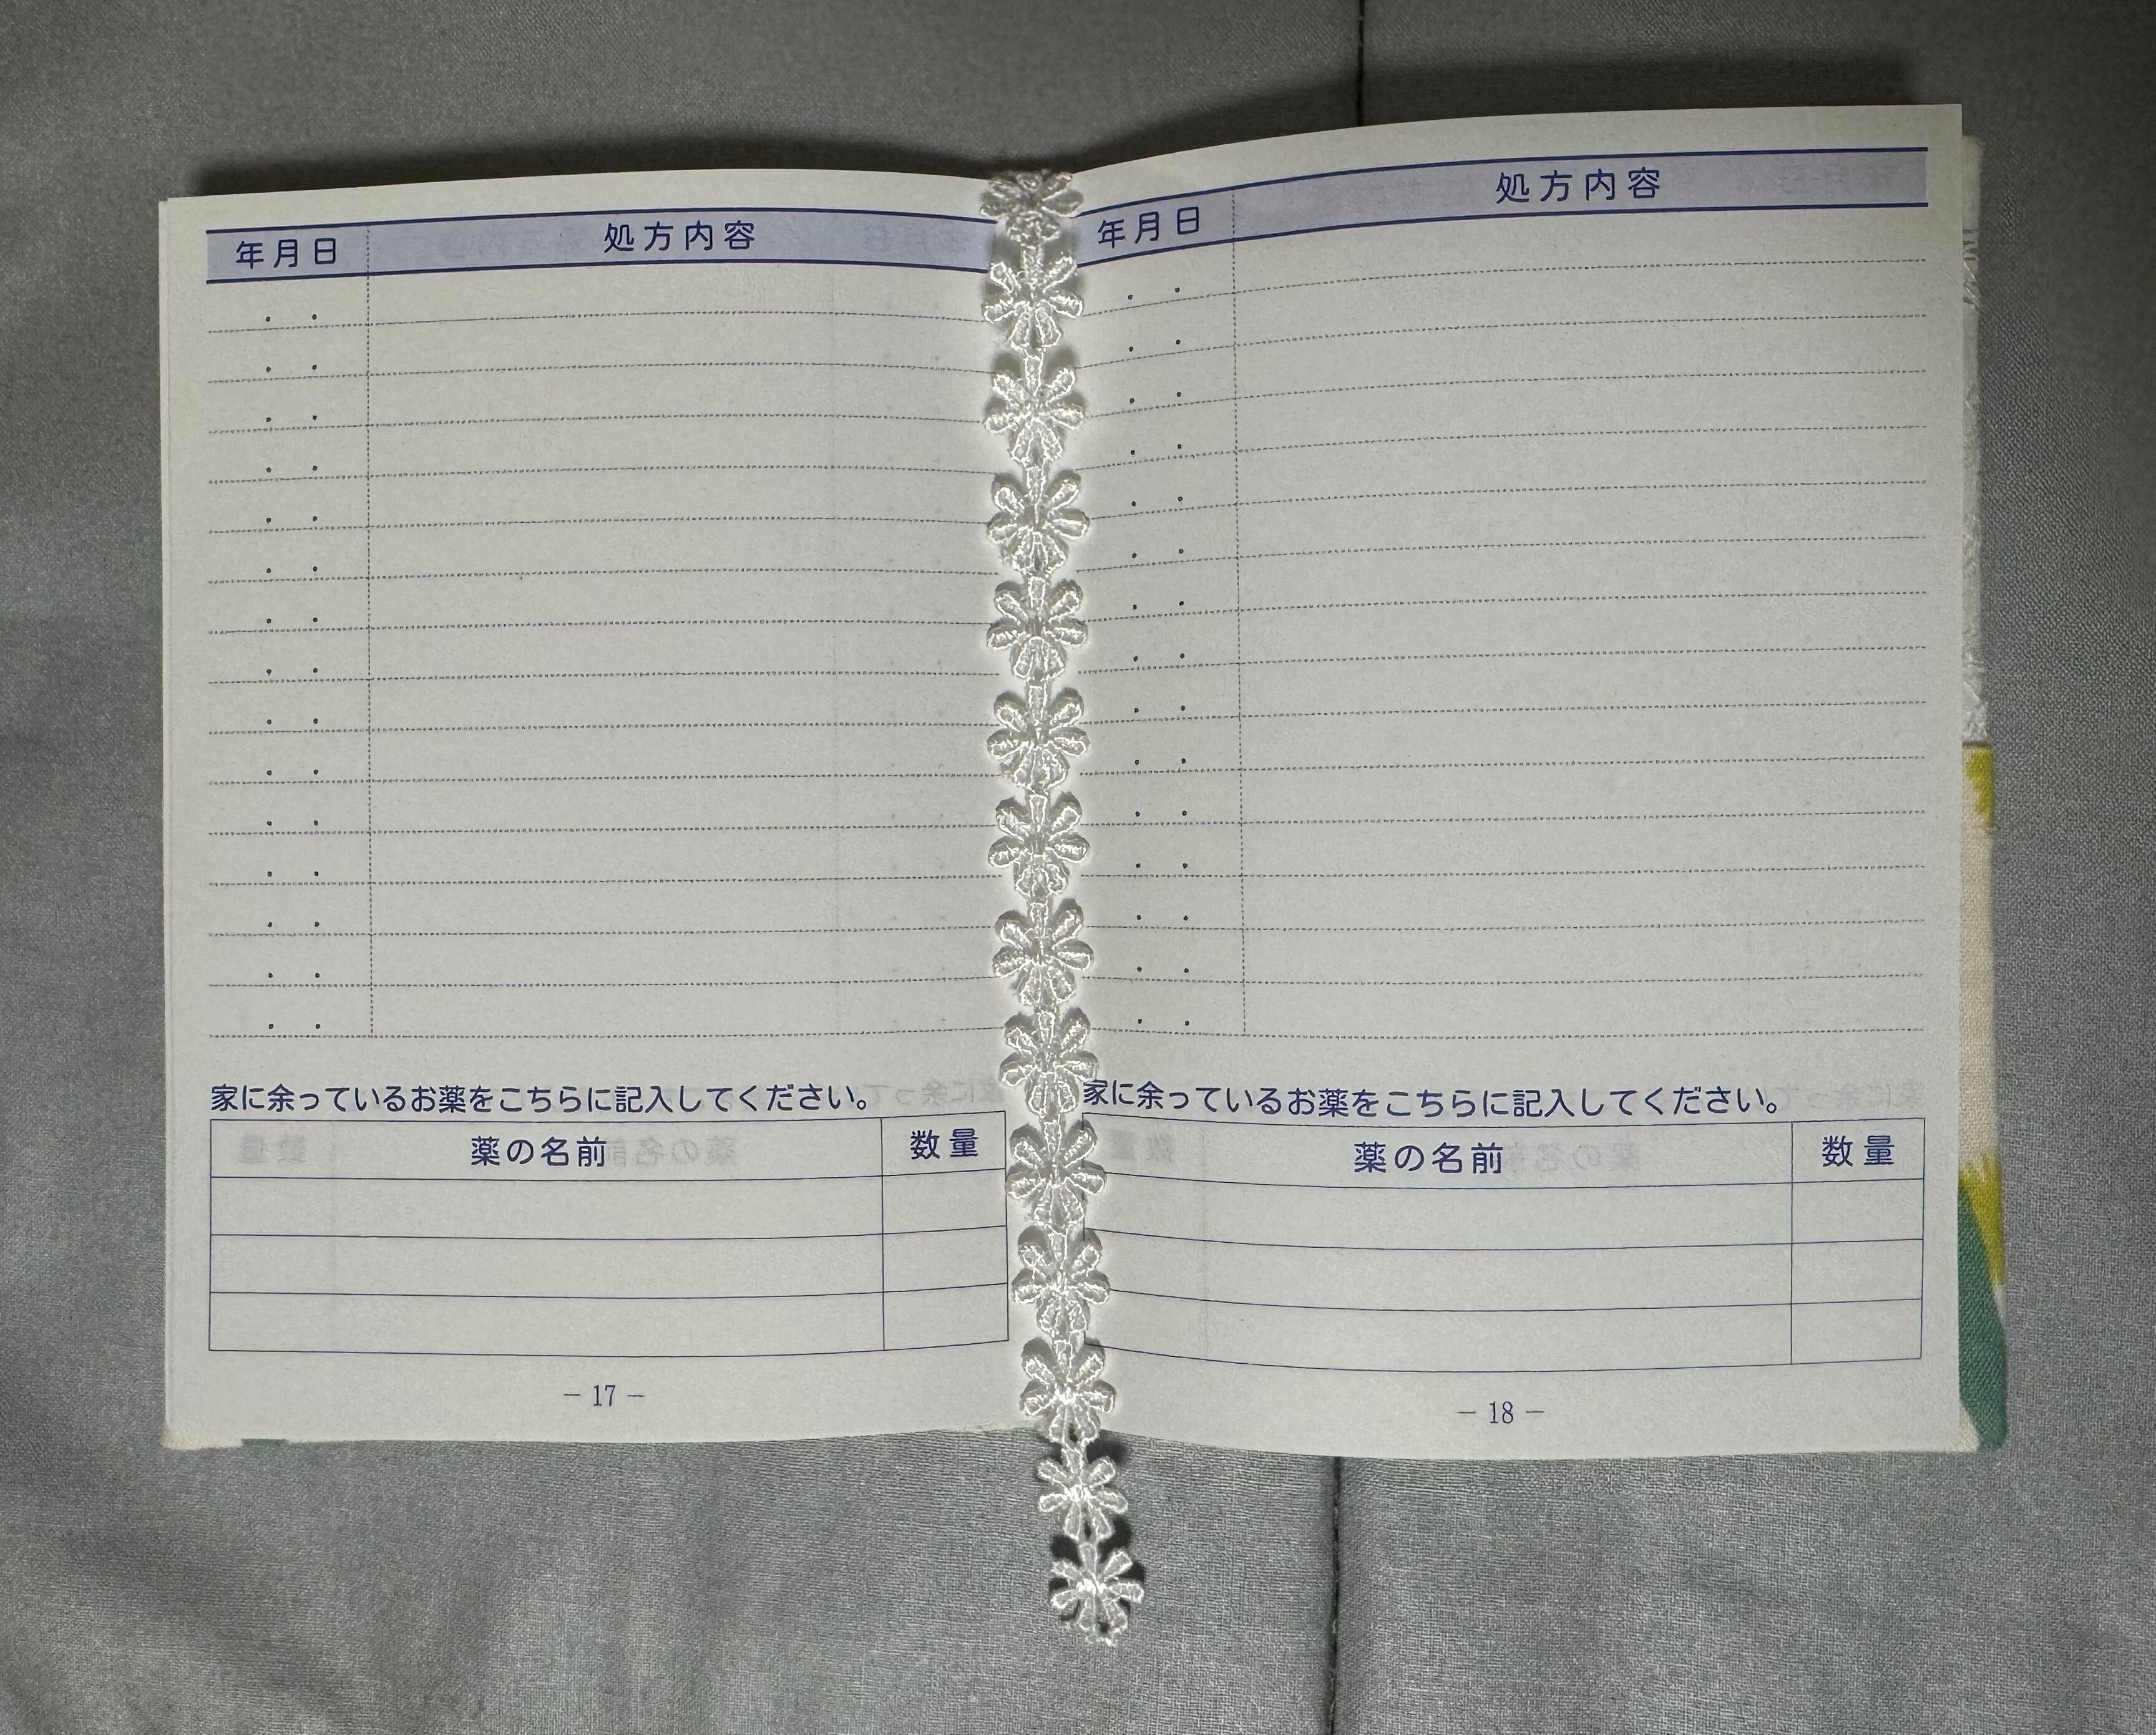 年月日 処方内容
家に余っているお薬をこちらに記入してください。
薬の名前 数量
－17－
年月日 処方内容
家に余っているお薬をこちらに記入してください。
薬の名前 数量
－18－